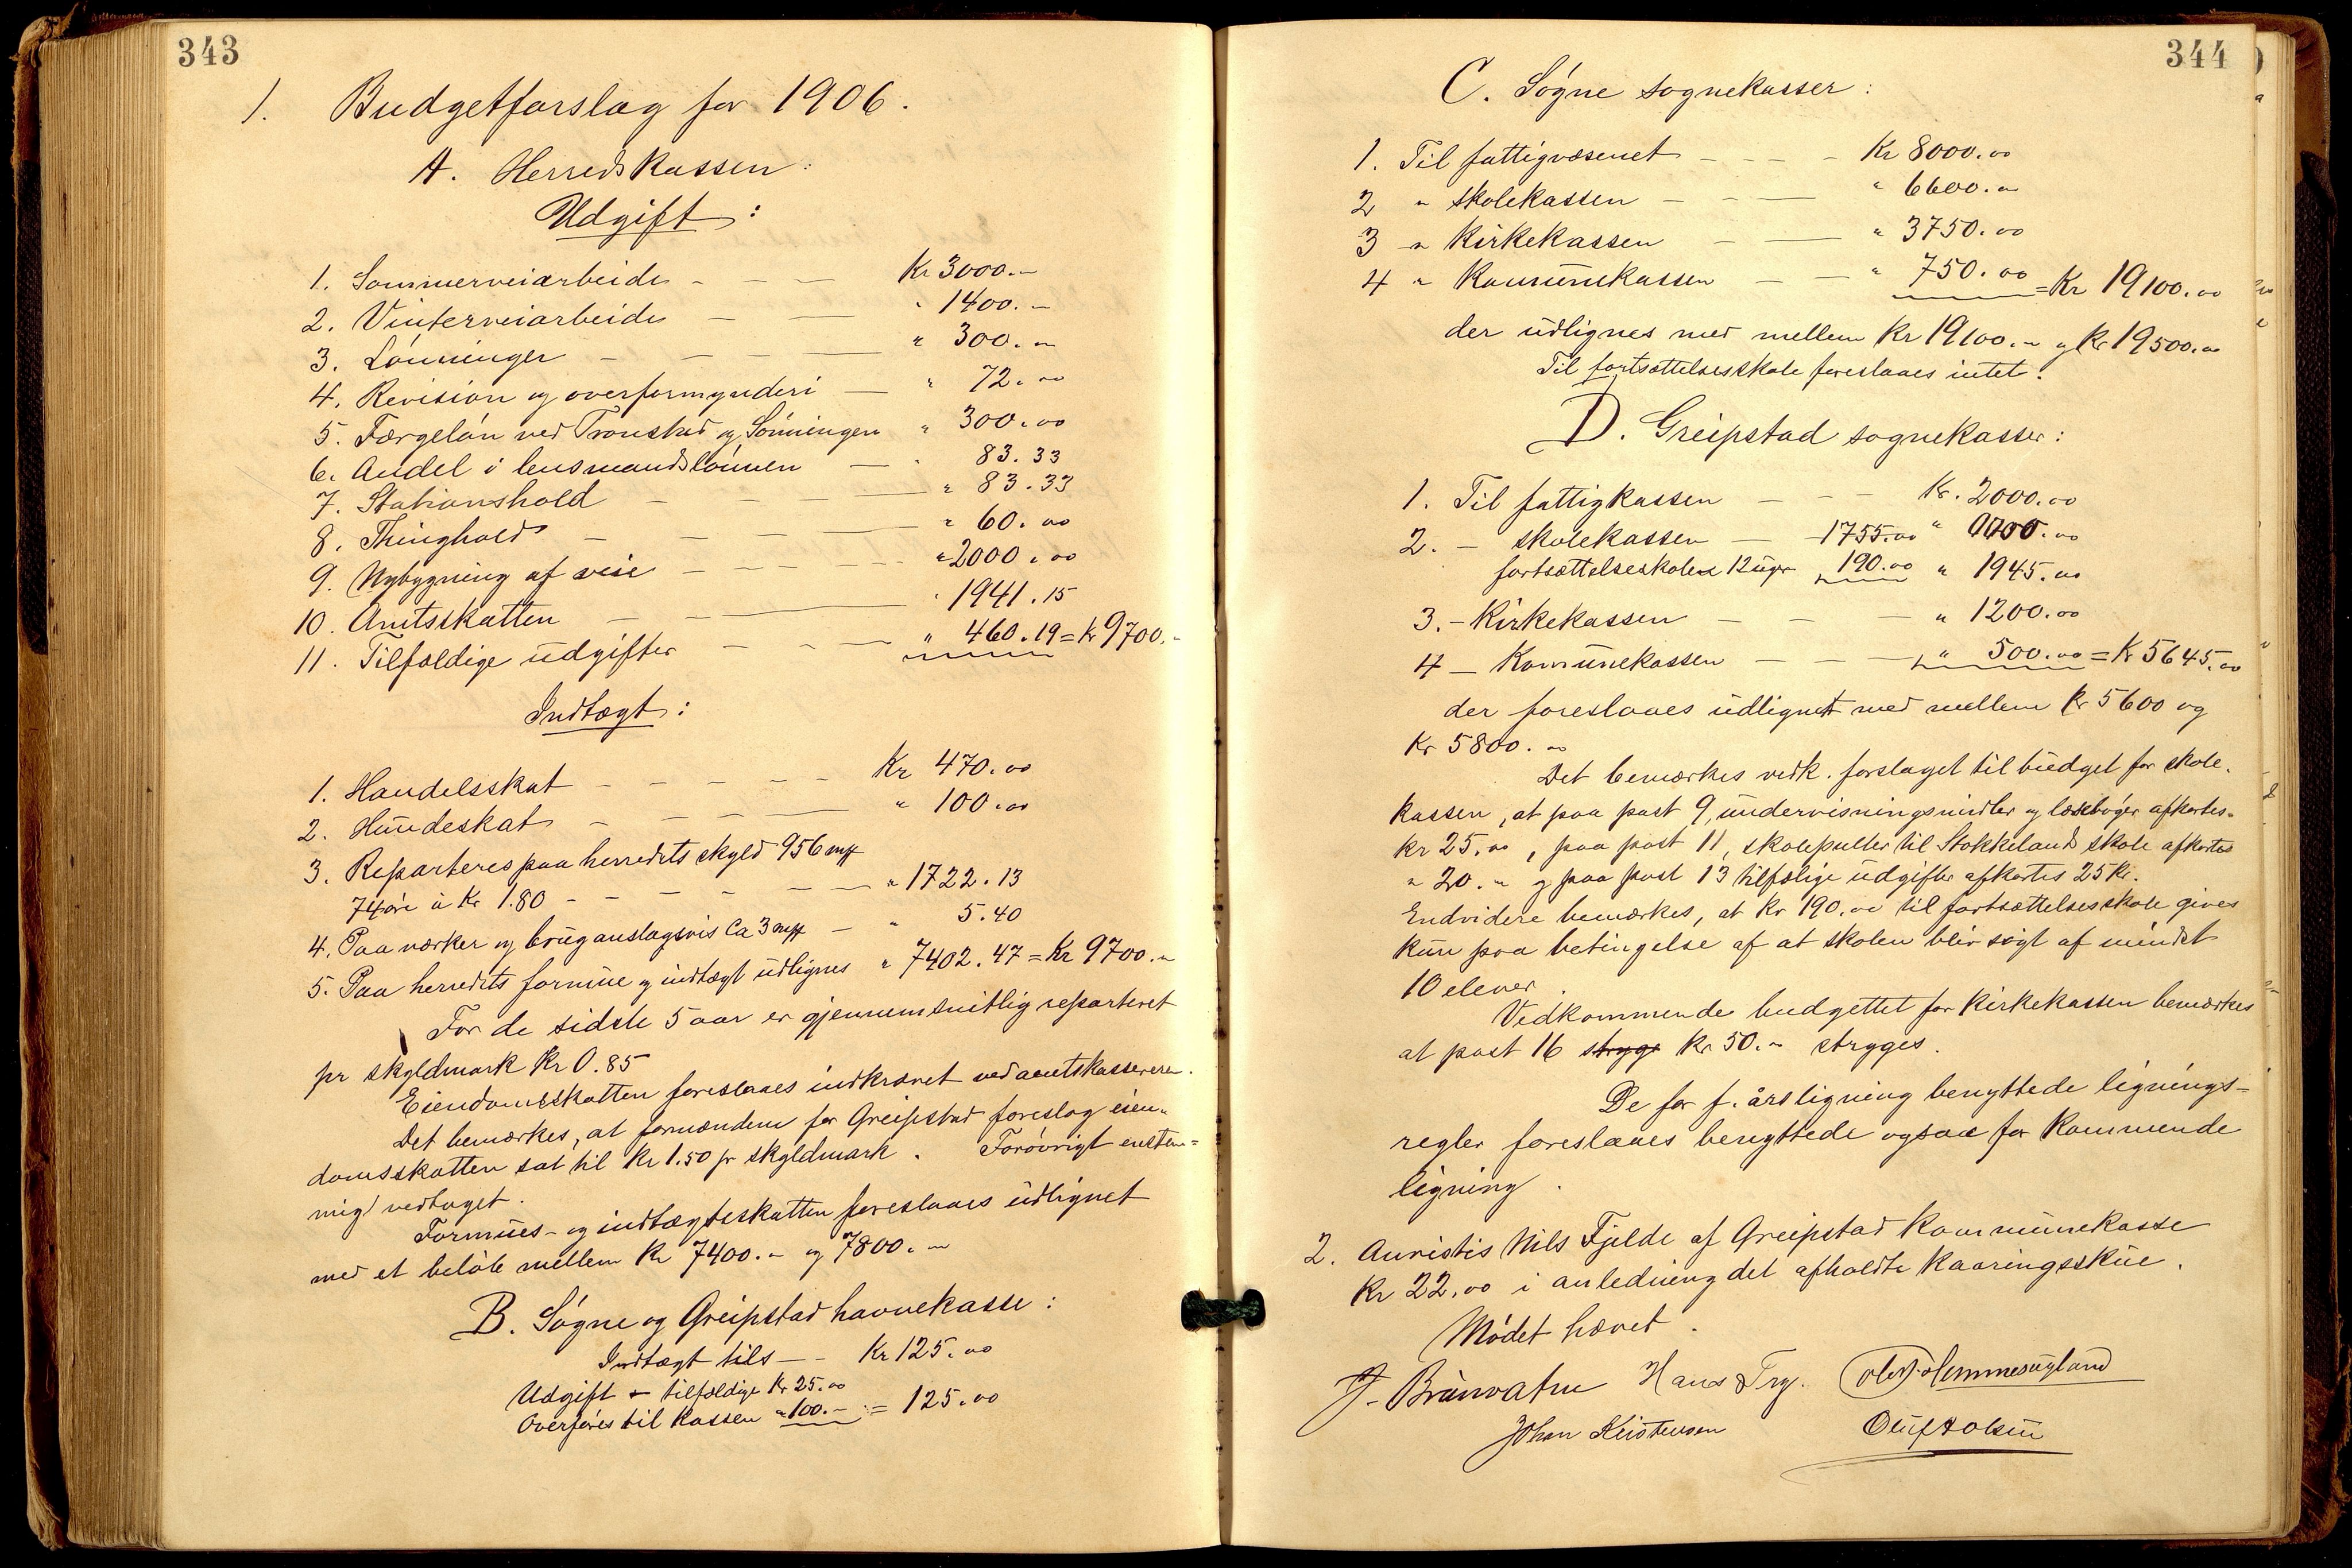 343
1. Budgetforslag for 1906.
A. Herredskassen:
Udgift:
1. Sommerveiarbeide - - - Kr 3000.-
2. Vinterveiarbeide - - " 1400.-
3. Lönninger - - - " 300.-
4. Revision og overformynderi - " 72.00
5. Færgelön ved Tronstad og Lönningen " 300.00
6. Andel i lensmandslönnen - " 83.33
7. Stationshold - - - " 83.33
8. Thinghold - - - " 60.00
9. Nybygning af veie - - - " 2000.00
10. Amtsskatten - - - " 1941.15
11. Tilfældige udgifter - - - " 460.19 = Kr 9700.-
Indtægt:
1. Handelsskat - - - - - Kr 470.00
2. Hundeskat - - - - " 100.00
3. Reparteres paa herredets skyld 956 mk
74 öre à Kr 1.80 - - - - - " 1722.13
4. Paa værker og brug anslagsvis Ca 3 mk - " 5.40
5. Paa herredets formue og indtægt udlignes " 7402.47 = Kr 9700.-
For de sidste 5 aar er gjennemsnitlig reparteret
pr skyldmark Kr 0.85
Eiendomsskatten foreslaaes indkrævet ved amtskassereren.
Det bemærkes, at formændene for Greipstad foreslog eien-
domsskatten sat til Kr 1.50 pr skyldmark. Forövrigt enstem=
mig vedtaget.
Formues- og indtægtsskatten foreslaaes udlignet
med et belöb mellem Kr 7400.- og 7800.-
B. Sögne og Greipstad havnekasse:
Indtægt tils - - Kr 125.00
Udgift - tilfældige Kr 25.00
Overföres til kassen " 100.- = 125.00
344
C. Sögne sognekasser:
1. Til fattigvæsenet - - - - Kr 8000.00
2 " skolekassen - - - " 6600.-
3 " Kirkekassen - - " 3750.00
4 " Kommunekassen - - " 750.00 = Kr 19100.00
der udlignes med mellem Kr 19100.- og Kr 19500.00
Til fortsættelsesskole foreslaaes intet.
D. Greipstad sognekasser:
1. Til fattigkassen - - - Kr. 2000.00
2. - skolekassen - 1755.00 "
fortsættelseskolen 12 uger 190.00 " 1945.00
3. - Kirkekassen - - - " 1200.00
4 - Kommunekassen - - - " 500.00 = Kr 5645.00
der foreslaaes udlignet med mellem Kr 5600 og
Kr 5800.-
Det bemærkes vedk. forslaget til budget for skole-
kassen, at paa post 9, undervisningsmidler og læsebøger afkortes
Kr 25.00, paa post 11, skolepulter til Stokkelands skole afkortes
" 20.- og paa post 13 tilfælige udgifter afkortes 25 Kr.
Endvidere bemærkes, at Kr 190.00 til fortsættelsesskole gives
kun paa betingelse af at skolen blir søgt af mindst
10 elever.
Vedkommende budgettet for Kirkekassen bemærkes
at post 16 stryge Kr 50.- stryges.
De for f. års ligning benyttede lignings-
regler foreslaaes benyttede ogsaa for kommende
ligning.
2. Anvistis Nils Fjelde af Greipstad Kommunekasse
Kr 22.00 i anledning det afholdte kaaringsskue.
Mödet hævet.
J. Brunvatne Hans Try.
Johan Kristensen Oluf A Olsen